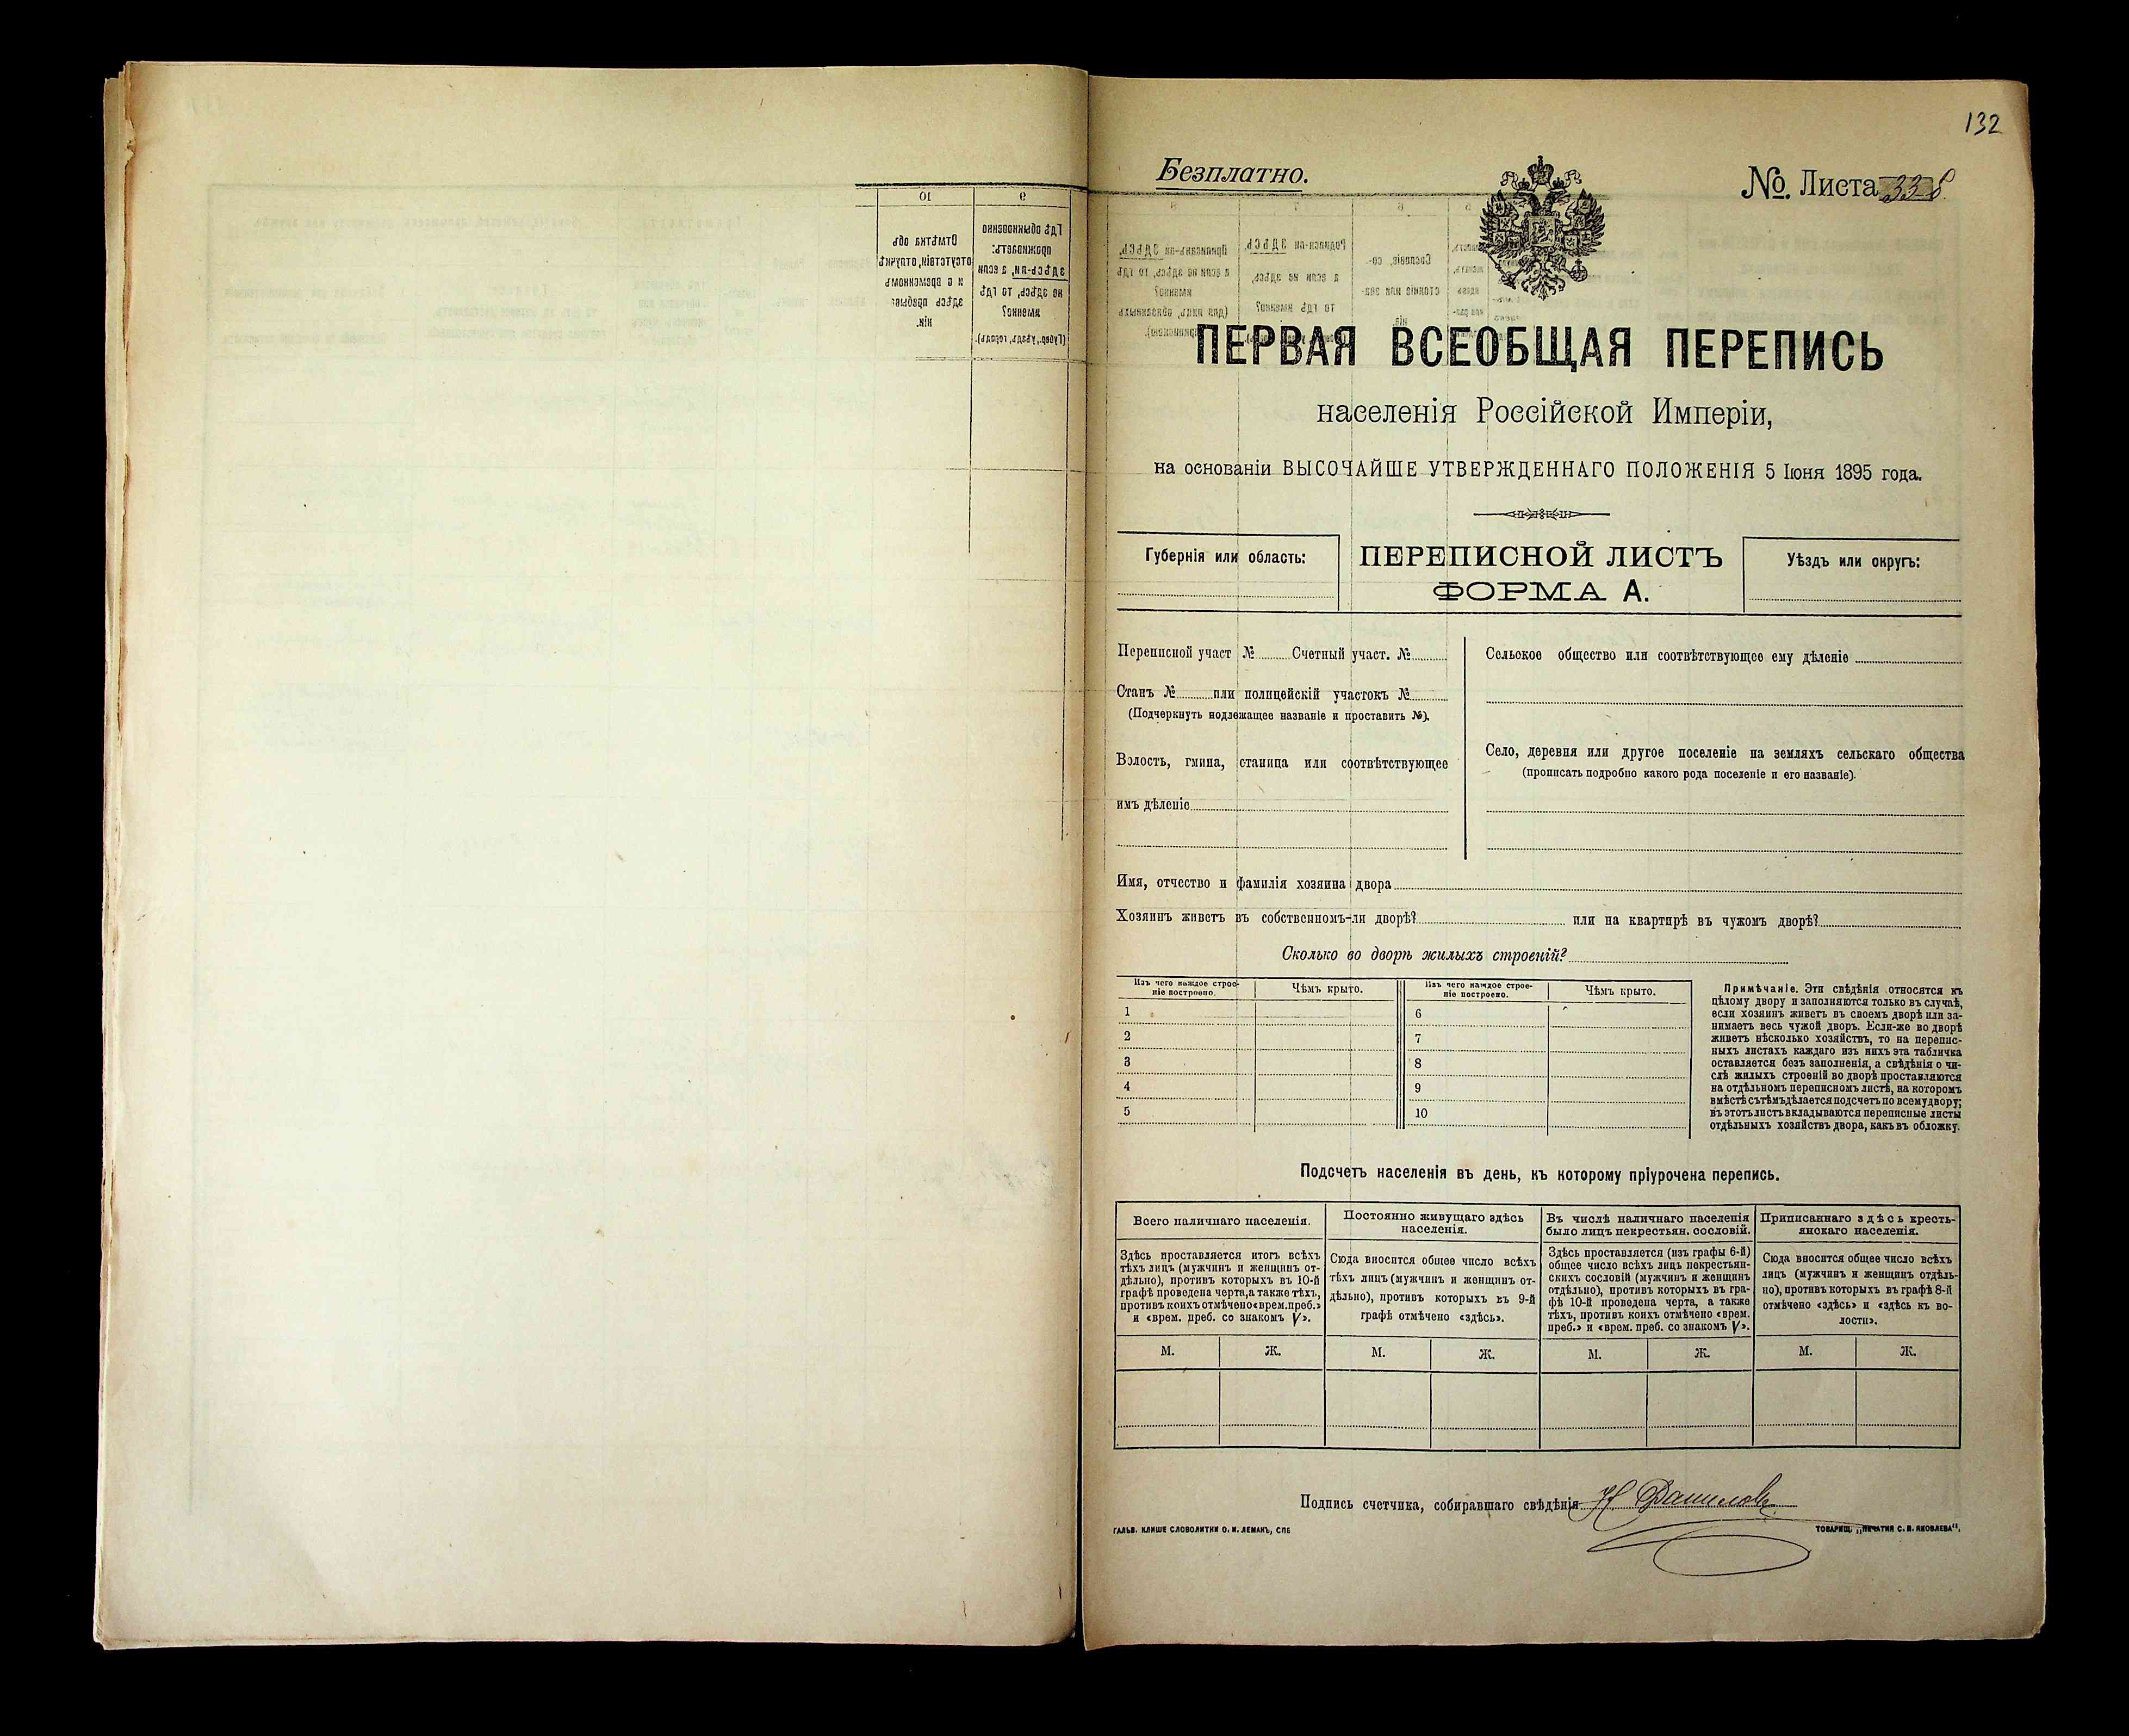 132
Безплатно.
№ Листа 338
10
9
Отмѣтка объ
отсутствіи, отлучкѣ
и о временномъ
здѣсь пребыва-
ніи.
Гдѣ обыкновенно
проживаетъ:
здѣсь-ли, а если
не здѣсь, то гдѣ
именно?
(Губер., уѣздъ, городъ).
ПЕРВАЯ ВСЕОБЩАЯ ПЕРЕПИСЬ
населенія Россійской Имперіи,
на основаніи ВЫСОЧАЙШЕ УТВЕРЖДЕННАГО ПОЛОЖЕНІЯ 5 Іюня 1895 года.
Губернія или область:
ПЕРЕПИСНОЙ ЛИСТЪ
ФОРМА А.
Уѣздъ или округъ:
Переписной участ № Счетный участ. №
Станъ № или полицейскій участокъ №
(Подчеркнуть подлежащее названіе и проставить №).
Волость, гмина, станица или соотвѣтствующее
имъ дѣленіе
Сельское общество или соотвѣтствующее ему дѣленіе
Село, деревня или другое поселеніе на земляхъ сельскаго общества
(прописать подробно какого рода поселеніе и его названіе).
Имя, отчество и фамилія хозяина двора
Хозяинъ живетъ въ собственномъ-ли дворѣ? или на квартирѣ въ чужомъ дворѣ?
Сколько во дворѣ жилыхъ строеній?
Изъ чего каждое строе-
ніе построено.
Чѣмъ крыто.
Изъ чего каждое строе-
ніе построено.
Чѣмъ крыто.
1
6
2
7
3
8
4
9
5
10
Примѣчаніе. Эти свѣдѣнія относятся къ
цѣлому двору и заполняются только въ случаѣ,
если хозяинъ живетъ въ своемъ дворѣ или за-
нимаетъ весь чужой дворъ. Если-же во дворѣ
живетъ нѣсколько хозяйствъ, то на перепис-
ныхъ листахъ каждаго изъ нихъ эта табличка
оставляется безъ заполненія, а свѣдѣнія о чи-
слѣ жилыхъ строеній во дворѣ проставляются
на отдѣльномъ переписномъ листѣ, на которомъ
вмѣстѣ съ тѣмъ дѣлается подсчетъ по всему двору;
въ этотъ листъ вкладываются переписные листы
отдѣльныхъ хозяйствъ двора, какъ въ обложку.
Подсчетъ населенія въ день, къ которому пріурочена перепись.
Всего наличнаго населенія.
Здѣсь проставляется итогъ всѣхъ
тѣхъ лицъ (мужчинъ и женщинъ от-
дѣльно), противъ которыхъ въ 10-й
графѣ проведена черта, а также тѣхъ,
противъ коихъ отмѣчено «врем. преб.»
и «врем. преб. со знакомъ V».
Постоянно живущаго здѣсь
населенія.
Сюда вносится общее число всѣхъ
тѣхъ лицъ (мужчинъ и женщинъ от-
дѣльно), противъ которыхъ въ 9-й
графѣ отмѣчено «здѣсь».
Въ числѣ наличнаго населенія
было лицъ некрестьян. сословій.
Здѣсь проставляется (изъ графы 6-й)
общее число всѣхъ лицъ некрестьян-
скихъ сословій (мужчинъ и женщинъ
отдѣльно), противъ которыхъ въ гра-
фѣ 10-й проведена черта, а также
тѣхъ, противъ коихъ отмѣчено «врем.
преб.» и «врем. преб. со знакомъ V».
Приписаннаго здѣсь кресть-
янскаго населенія.
Сюда вносится общее число всѣхъ
лицъ (мужчинъ и женщинъ отдѣль-
но), противъ которыхъ въ графѣ 8-й
отмѣчено «здѣсь» и «здѣсь къ во-
лости».
М. Ж. М. Ж. М. Ж. М. Ж.
Подпись счетчика, собиравшаго свѣдѣнія Н Даниловъ
ГАЛЬВ. КЛИШЕ СЛОВОЛИТНИ О. И. ЛЕМАНЪ, СПБ
ТОВАРИЩ. „ПЕЧАТНЯ С. П. ЯКОВЛЕВА".